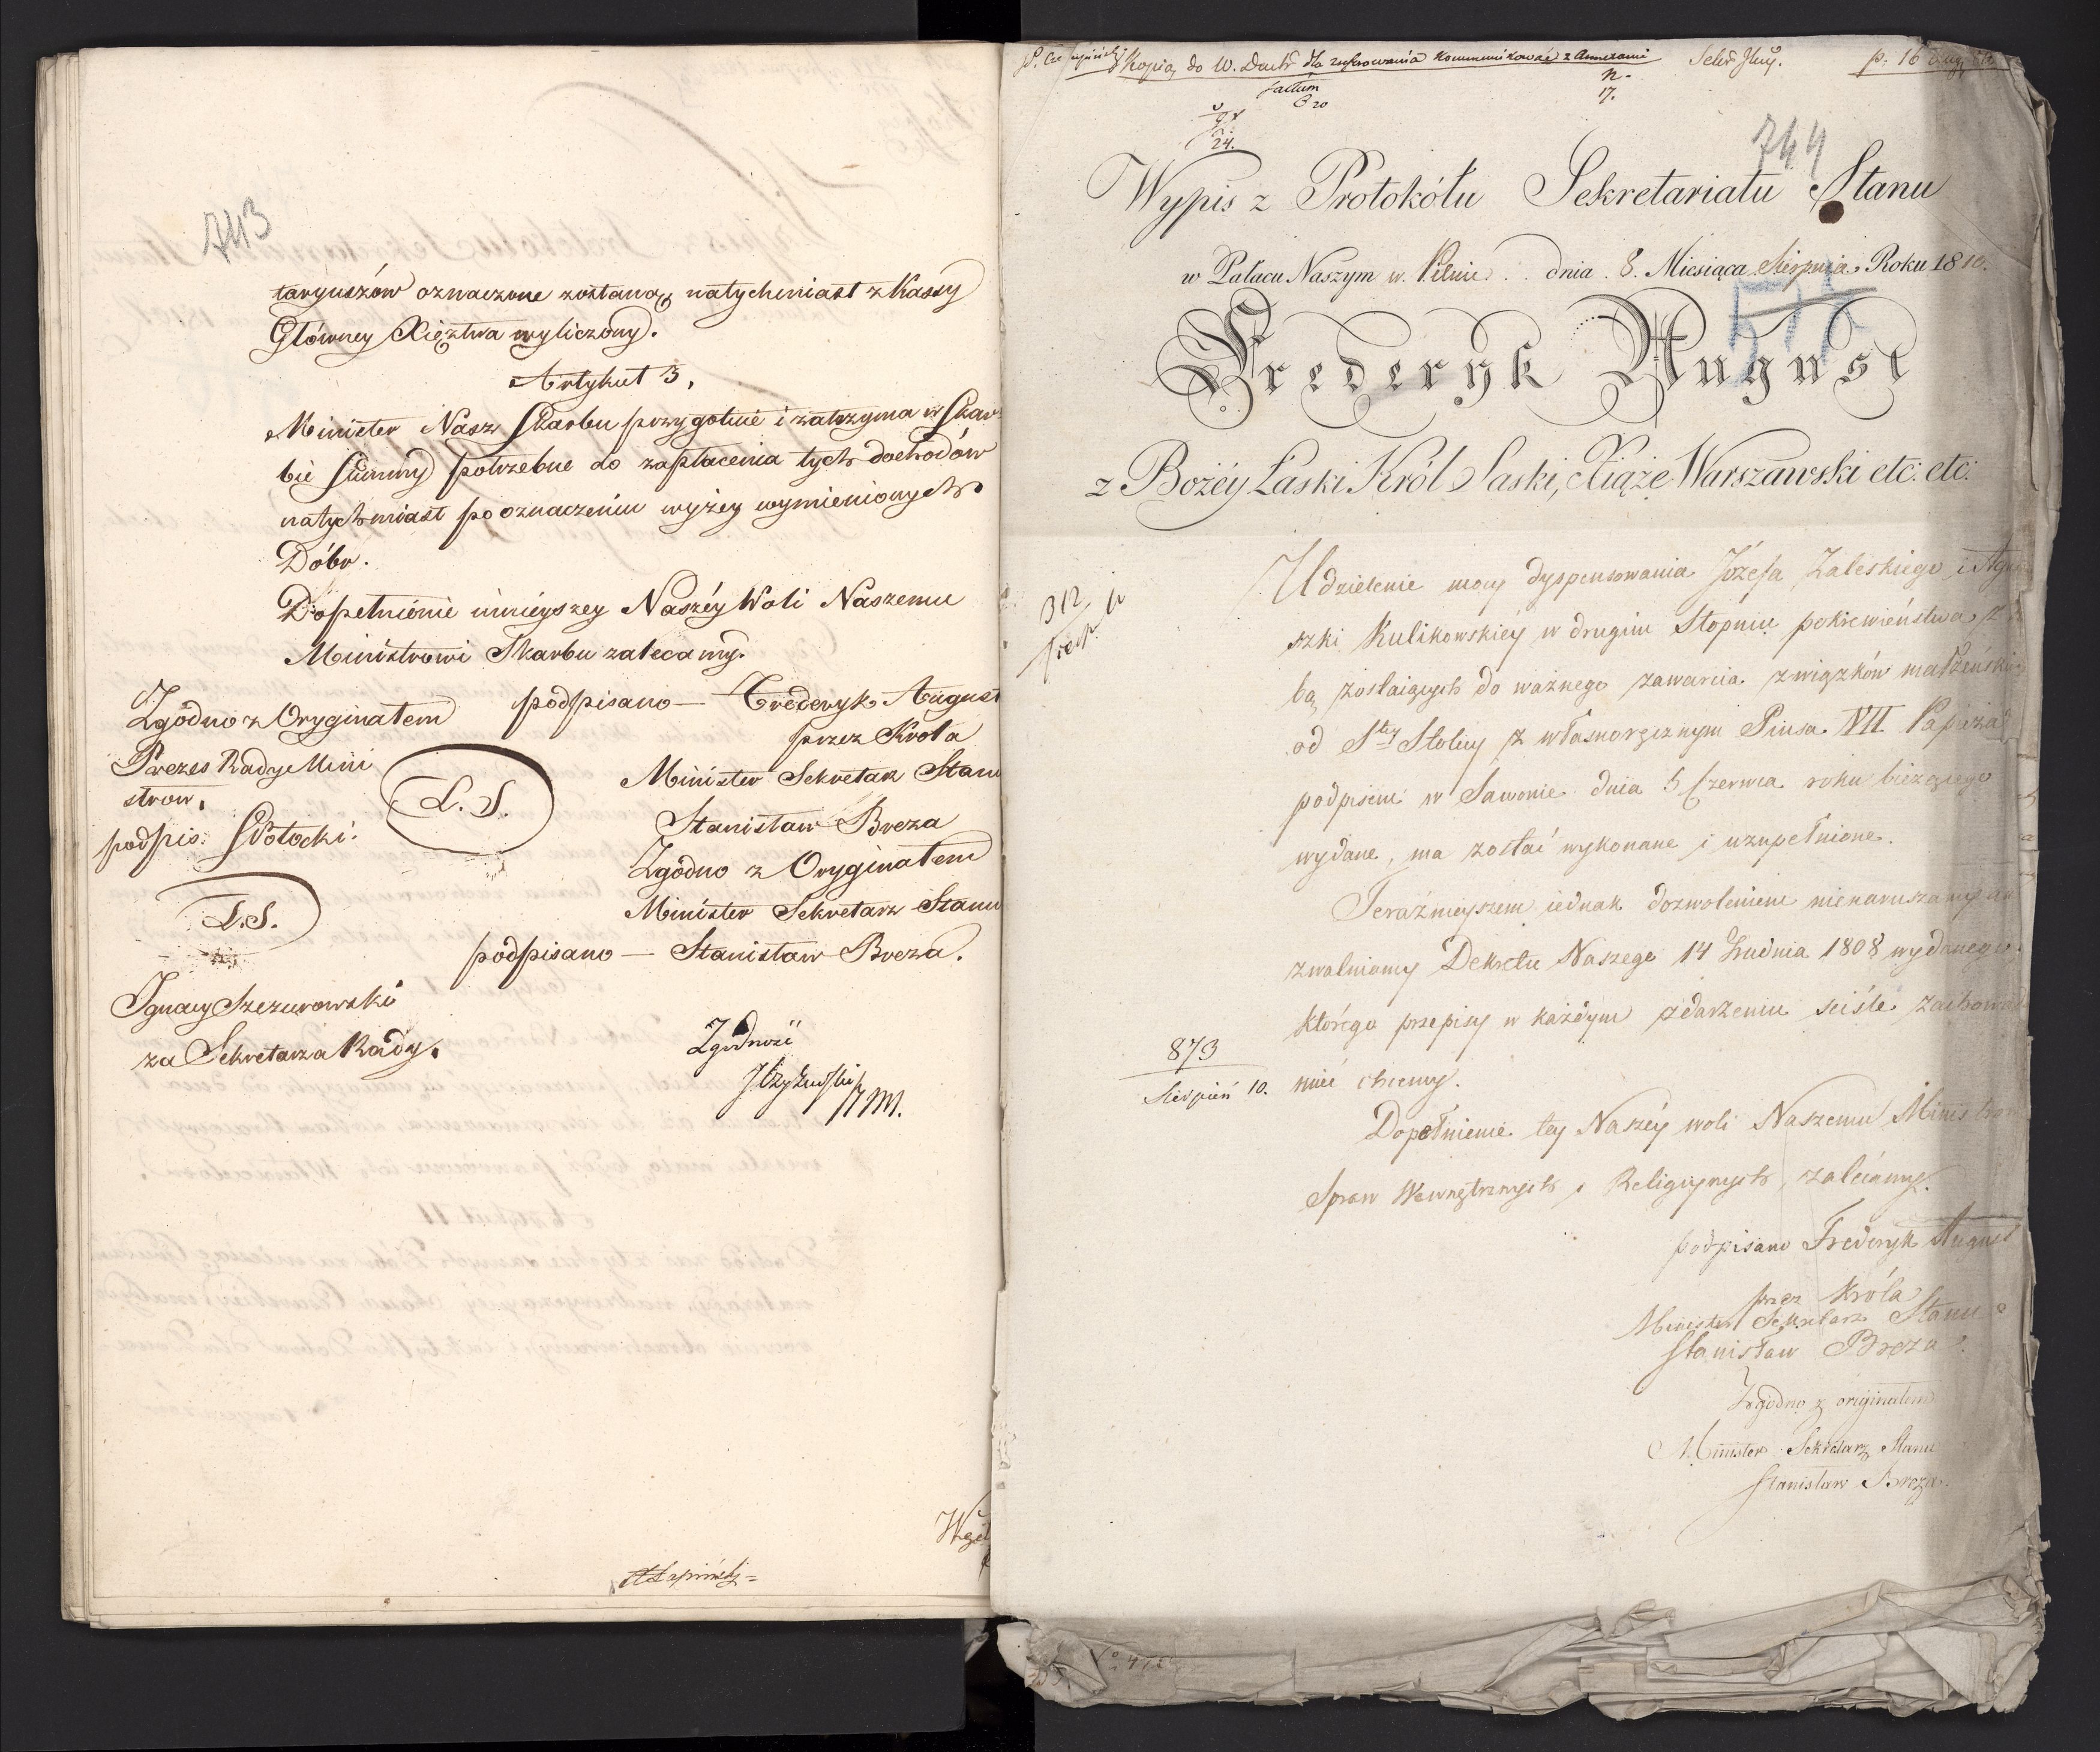 743
taryuszów oznaczone zostaną, natychmiast z Kassy
Główney Xięztwa wyliczony.
Artykuł 3.
Minister Nasz Skarbu przygotuie i zatrzyma w Skar-
bie Summy potrzebne do zapłacenia tych dochodów
natychmiast po oznaczeniu wyżey wymienionych
Dóbr.
Dopełnienie ninieyszey Naszéy Woli Naszemu
Ministrowi Skarbu zalecamy.
podpisano — Frederyk August
przez Króla
Minister Sekretarz Stanu
Stanisław Breza
Zgodno z Oryginałem
Minister Sekretarz Stanu
podpisano — Stanisław Breza.
Zgodno z Oryginałem
Prezes Rady Mini
strow.
podpis: Potocki.
L. S.
L. S.
Ignacy Szczurowski
za Sekretarza Rady.
Zgodność
Kopią do W. Dachr dla kommunikować z Annexami
p. 16
factum
20
n.
17.
24.
744
Wypis z Protokółu Sekretariatu Stanu
w Pałacu Naszym w. Pilnic dnia 8. Miesiąca Sierpnia, Roku 1810.
Frederyk August
z Bożéy Łaski Król Saski, Xiąże Warszawski etc: etc:
Udzielenie mocy dyspensowania Józefa Zaleskiego i Agnie
szki Kulikowskiéy w drugim Stopniu pokrewieństwa, z so
bą zostaiących do ważnego zawarcia związków małżeński
od Stey Stolicy z własnoręcznym Piusa VII Papieża
podpisem w Sawonie dnia 5 Czerwca roku bieżącego
wydane, ma zostać wykonane i uzupełnione.
Teraźnieyszem iednak dozwoleniem nienaruszamy ani
zwalniamy Dekretu Naszego 14 Grudnia 1808 wydanego.
którego przepisy w każdym zdarzeniu ściśle zachować
mieć chcemy.
Dopełnienie tey Naszéy woli Naszemu Ministrowi
Spraw Wewnętrznych i Religiynych, zalecamy.
312
873
Sierpień 10.
podpisano Frederyk August
przez Króla
Minister Sekretarz Stanu
Stanisław Breza
Zgodno z originałem
Minister Sekretarz Stanu
Stanisław Breza.